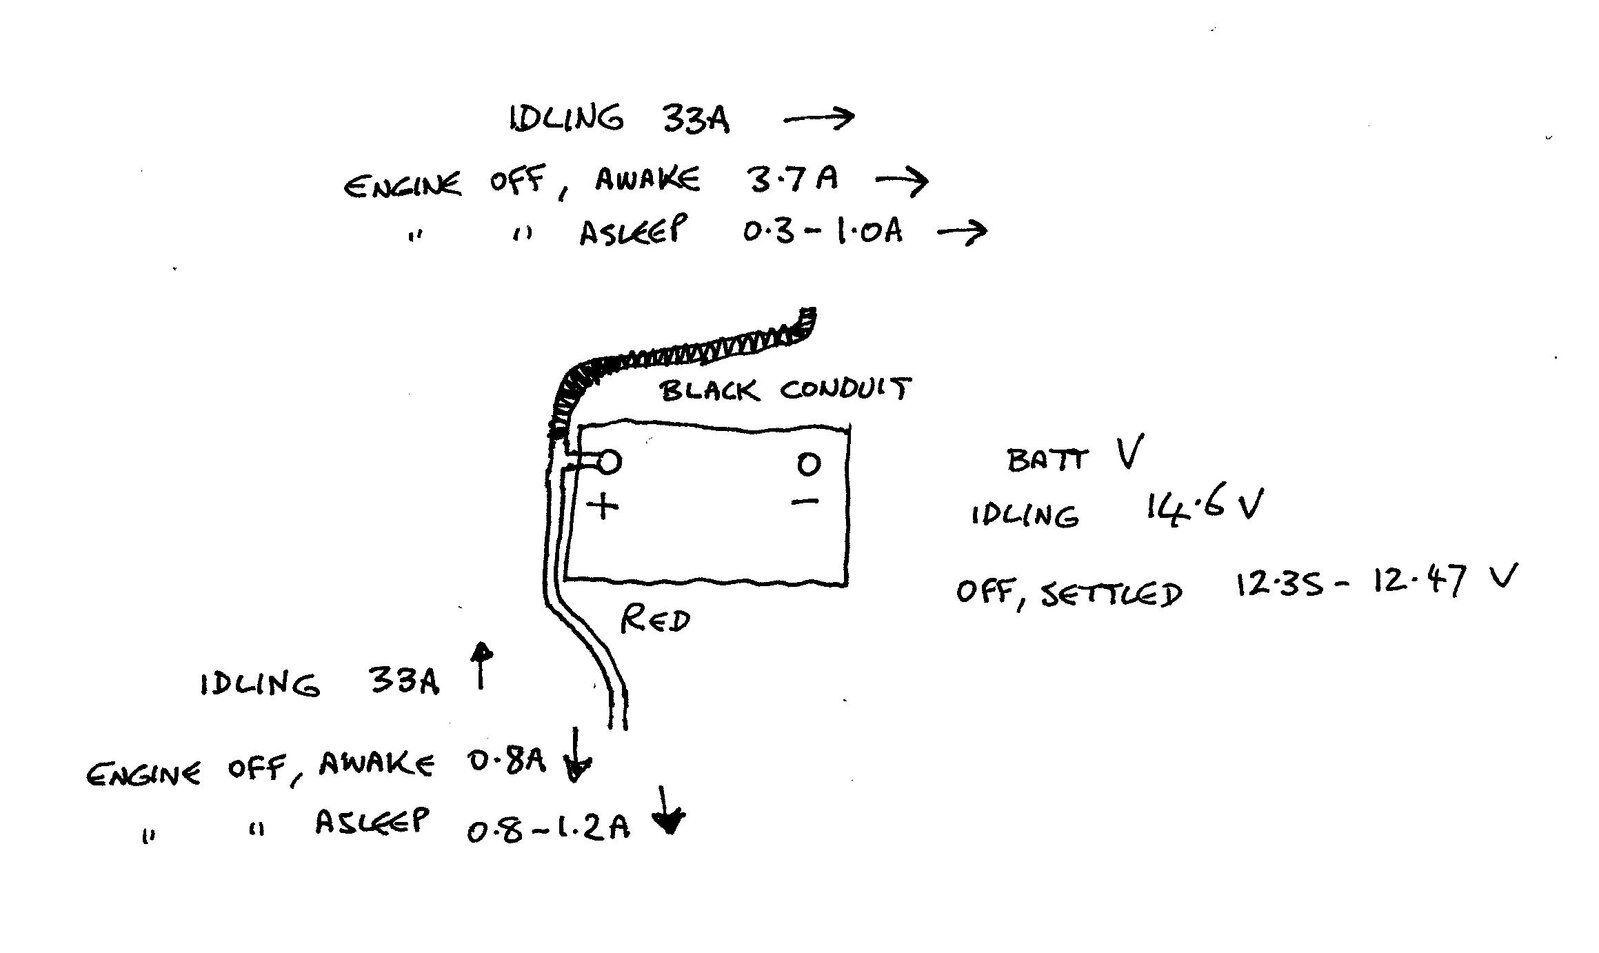 IDLING 33A →
ENGINE OFF, AWAKE 3.7A →
" " ASLEEP 0.3-1.0A →
BLACK CONDUIT
+ -
BATT V
IDLING 14.6V
OFF, SETTLED 12.35-12.47 V
RED
IDLING 33A ↑
ENGINE OFF, AWAKE 0.8A ↓
" " ASLEEP 0.8-1.2A ↓